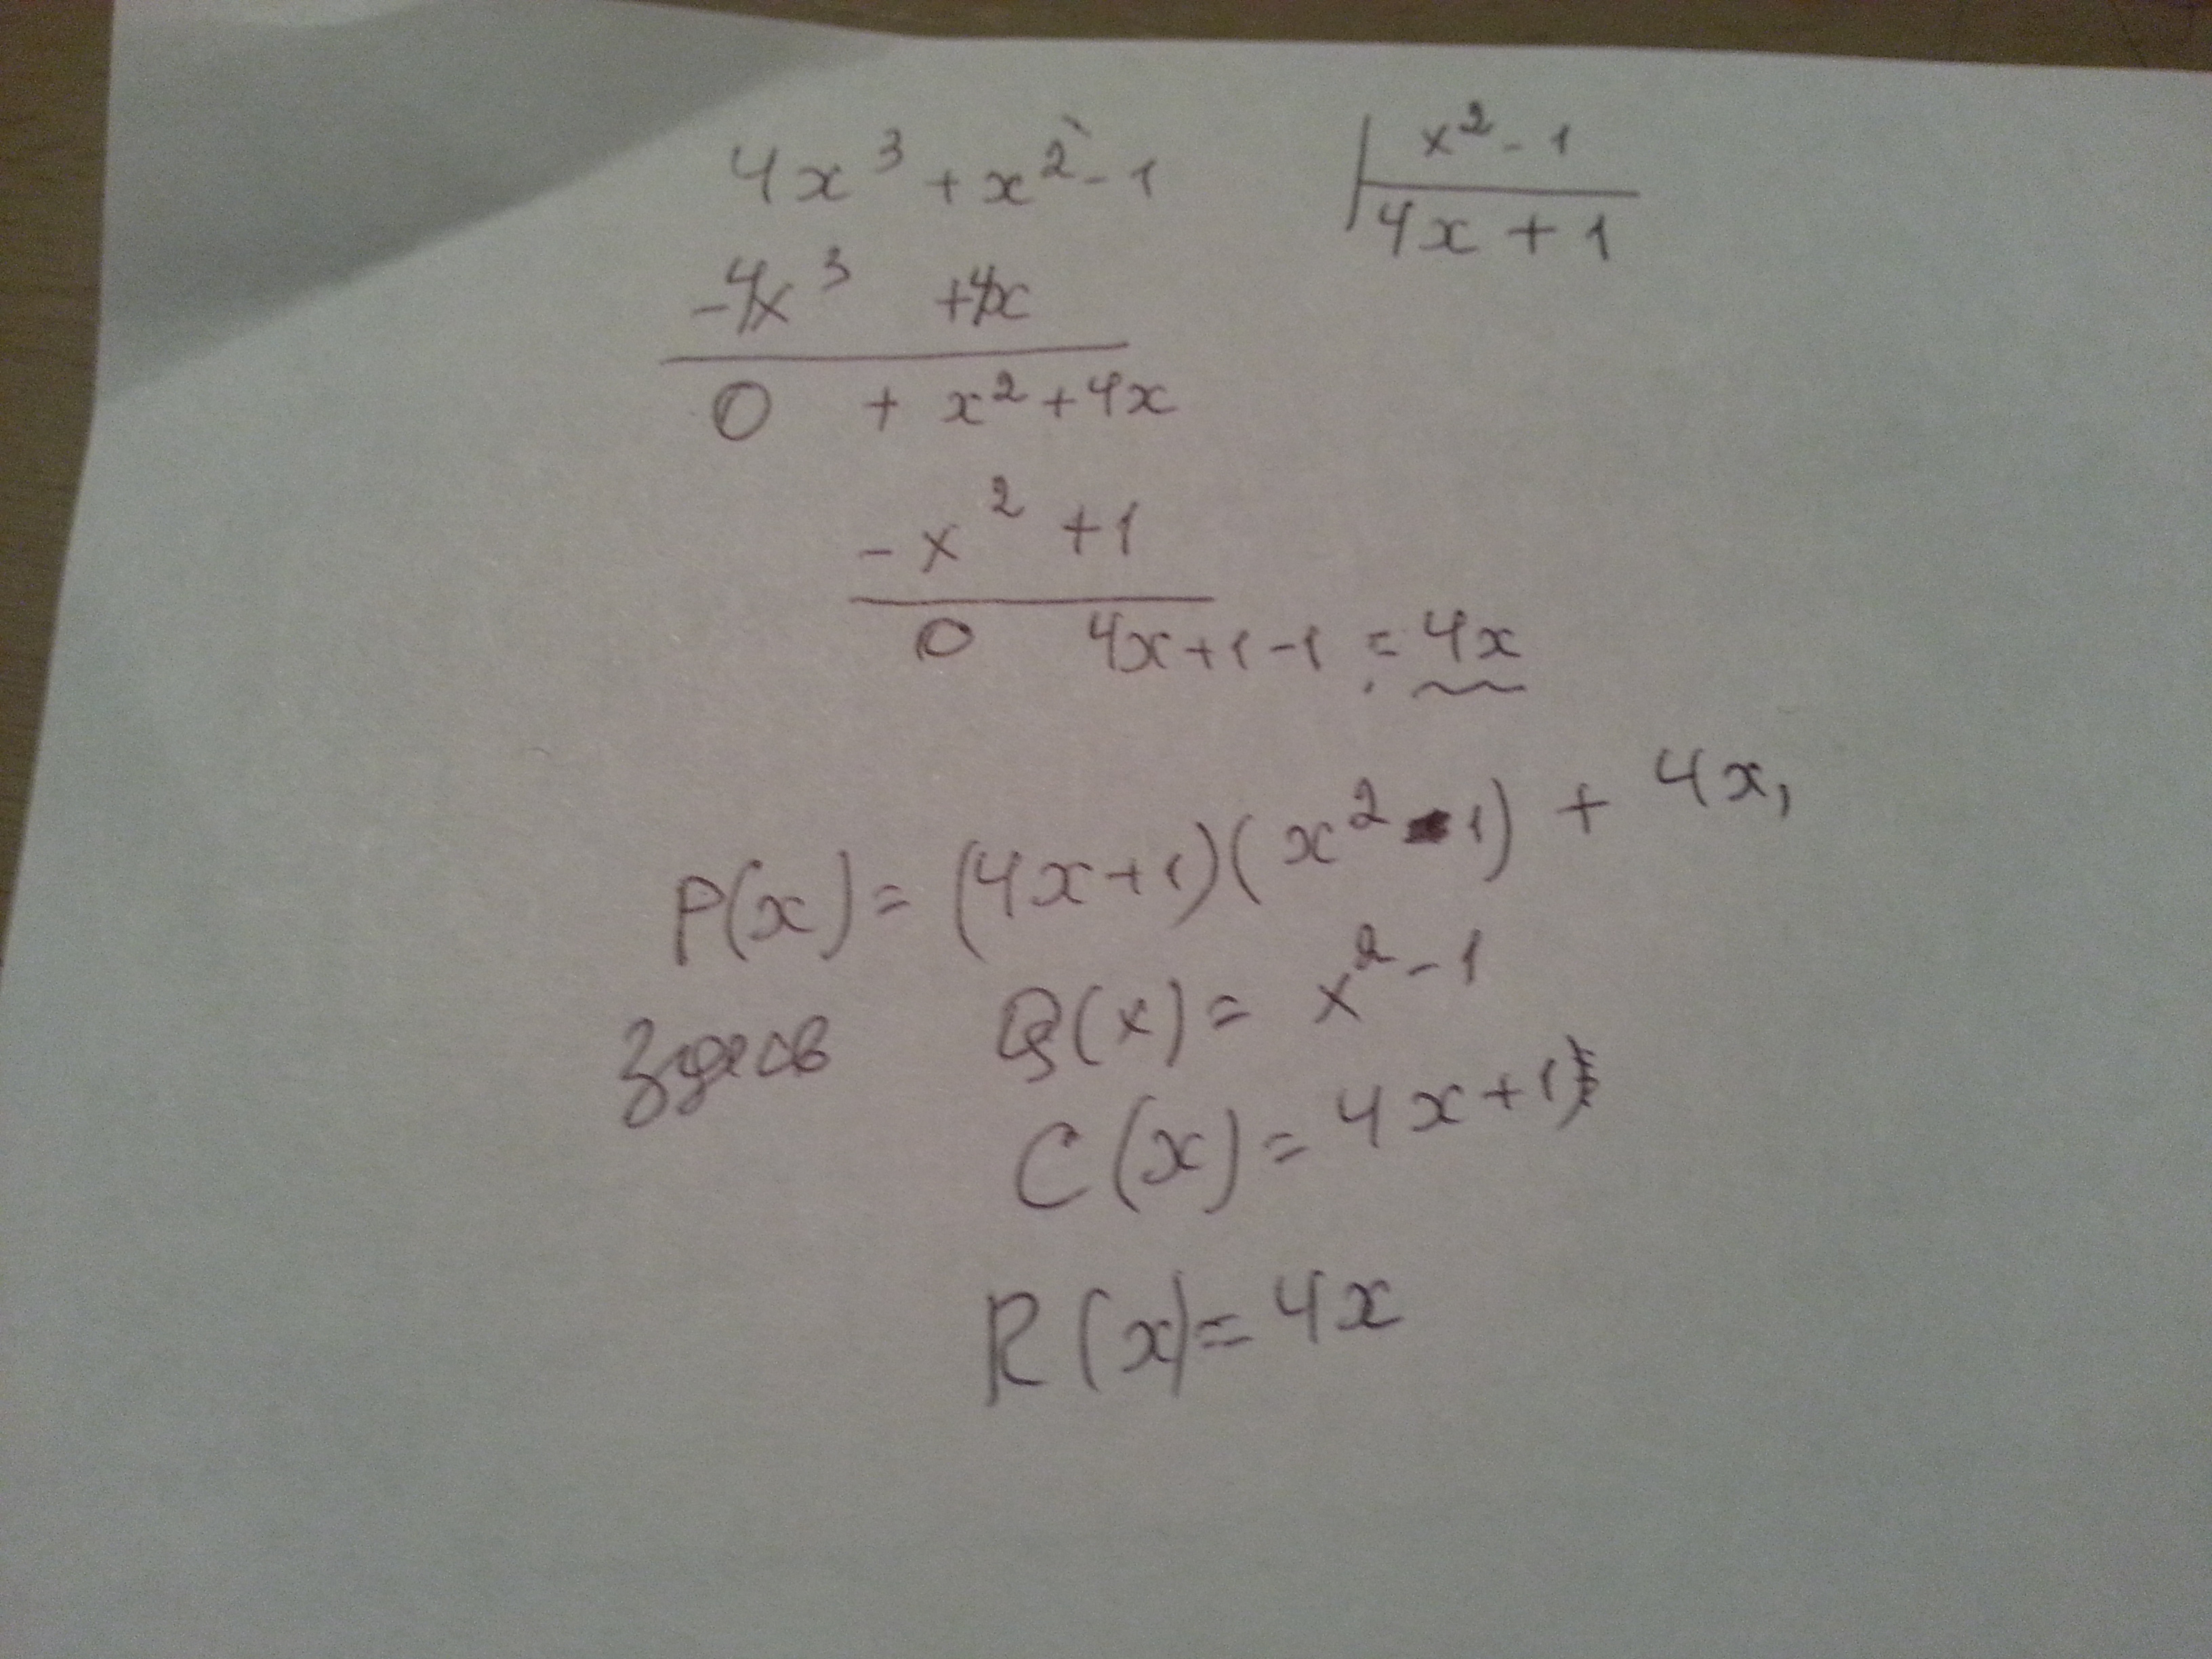 4x³ + x² - 1
x² - 1
4x + 1
-4x³ +4x
0 + x² + 4x
- x² + 1
0 4x + 1 - 1 = 4x
P(x) = (4x+1)(x² - 1) + 4x,
Здесь Q(x) = x² - 1
C(x) = 4x + 1
R(x) = 4x